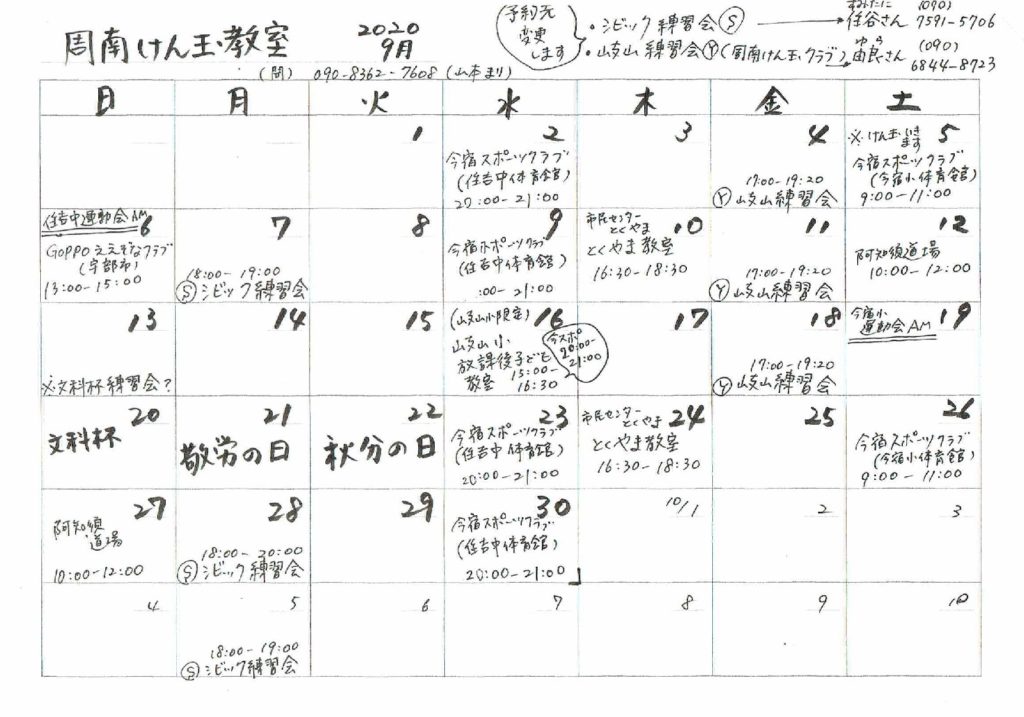 周南けん玉教室
2020
9月
(問) 090-8362-7608 (山本まり)
予約元
変更
します
・シビック練習会Ⓢ
すみたに
住谷さん
(090)
7591-5706
・岐山練習会Ⓨ(周南けん玉クラブ)
ゆら
由良さん
(090)
6844-8723
日 月 火 水 木 金 土
1
2
今宿スポーツクラブ
(住吉中体育館)
20:00-21:00
3
4
17:00-19:20
Ⓨ岐山練習会
※けん玉いき
ます
5
今宿スポーツクラブ
(今宿小体育館)
9:00-11:00
住吉中運動会AM
6
GOPPOええぞなクラブ
(宇部市)
13:00-15:00
7
18:00-19:00
Ⓢシビック練習会
8
9
今宿スポーツクラブ
(住吉中体育館)
:00-21:00
市民センター
とくやま
10
とくやま教室
16:30-18:30
11
17:00-19:20
Ⓨ岐山練習会
12
阿知須道場
10:00-12:00
13
※文科杯練習会?
14
15
(岐山小限定)
16
岐山小
放課後子ども
教室 15:00-
16:30
今スポ
20:00-
21:00
17
18
17:00-19:20
Ⓨ岐山練習会
今宿小
運動会AM
19
20
文科杯
21
敬労の日
22
秋分の日
23
今宿スポーツクラブ
(住吉中体育館)
20:00-21:00
市民センター
とくやま
24
とくやま教室
16:30-18:30
25
26
今宿スポーツクラブ
(今宿小体育館)
9:00-11:00
27
阿知須
道場
10:00-12:00
28
18:00-20:00
Ⓢシビック練習会
29
30
今宿スポーツクラブ
(住吉中体育館)
20:00-21:00
10/1
2
3
4
5
18:00-19:00
Ⓢシビック練習会
6
7
8
9
10